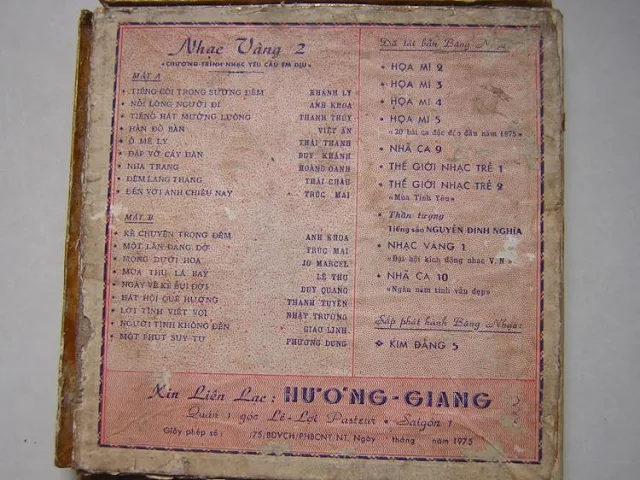 Nhạc Vàng 2
•CHƯƠNG TRÌNH NHẠC YÊU CẦU ÊM DỊU•
MẶT A
• TIẾNG CÒI TRONG SƯƠNG ĐÊM KHÁNH LY
• NỖI LÒNG NGƯỜI ĐI ANH KHOA
• TIẾNG HÁT MƯỜNG LUÔNG THANH THÚY
• HẬN ĐỒ BÀN VIỆT ẤN
• Ô MÊ LY THÁI THANH
• ĐẬP VỠ CÂY ĐÀN DUY KHÁNH
• NHA TRANG HOÀNG OANH
• ĐÊM LANG THANG THÁI CHÂU
• ĐẾN VỚI ANH CHIỀU NAY TRÚC MAI
MẶT B
• KỂ CHUYỆN TRONG ĐÊM ANH KHOA
• MỘT LẦN DANG DỞ TRÚC MAI
• MỘNG DƯỚI HOA JO MARCEL
• MÙA THU LÁ BAY LỆ THU
• NGÀY VỀ KẺ BỤI ĐỜI DUY QUANG
• HÁT HỘI QUÊ HƯƠNG THANH TUYỀN
• LỜI TÌNH VIẾT VỘI NHẬT TRƯỜNG
• NGƯỜI TÌNH KHÔNG ĐẾN GIAO LINH
• MỘT PHÚT SUY TƯ PHƯƠNG DUNG
Đã tái bản Băng Nhạc
• HỌA MI 2
• HỌA MI 3
• HỌA MI 4
• HỌA MI 5
«20 bài ca độc đáo đầu năm 1975»
• NHÃ CA 9
• THẾ GIỚI NHẠC TRẺ 1
• THẾ GIỚI NHẠC TRẺ 2
«Mùa Tình Yêu»
• Thần tượng
Tiếng sáo NGUYỄN ĐÌNH NGHĨA
• NHẠC VÀNG 1
«Đại hội kích động nhạc V.N»
• NHÃ CA 10
«Ngàn năm tình vẫn đẹp»
Sắp phát hành Băng Nhạc:
❖ KIM ĐẰNG 5
Xin Liên Lạc: HƯƠNG-GIANG
Quán 1 góc Lê-Lợi Pasteur • Saigon 1
Giấy phép số: /75/BDVCH/PHBCNT.NT. Ngày tháng năm 1975